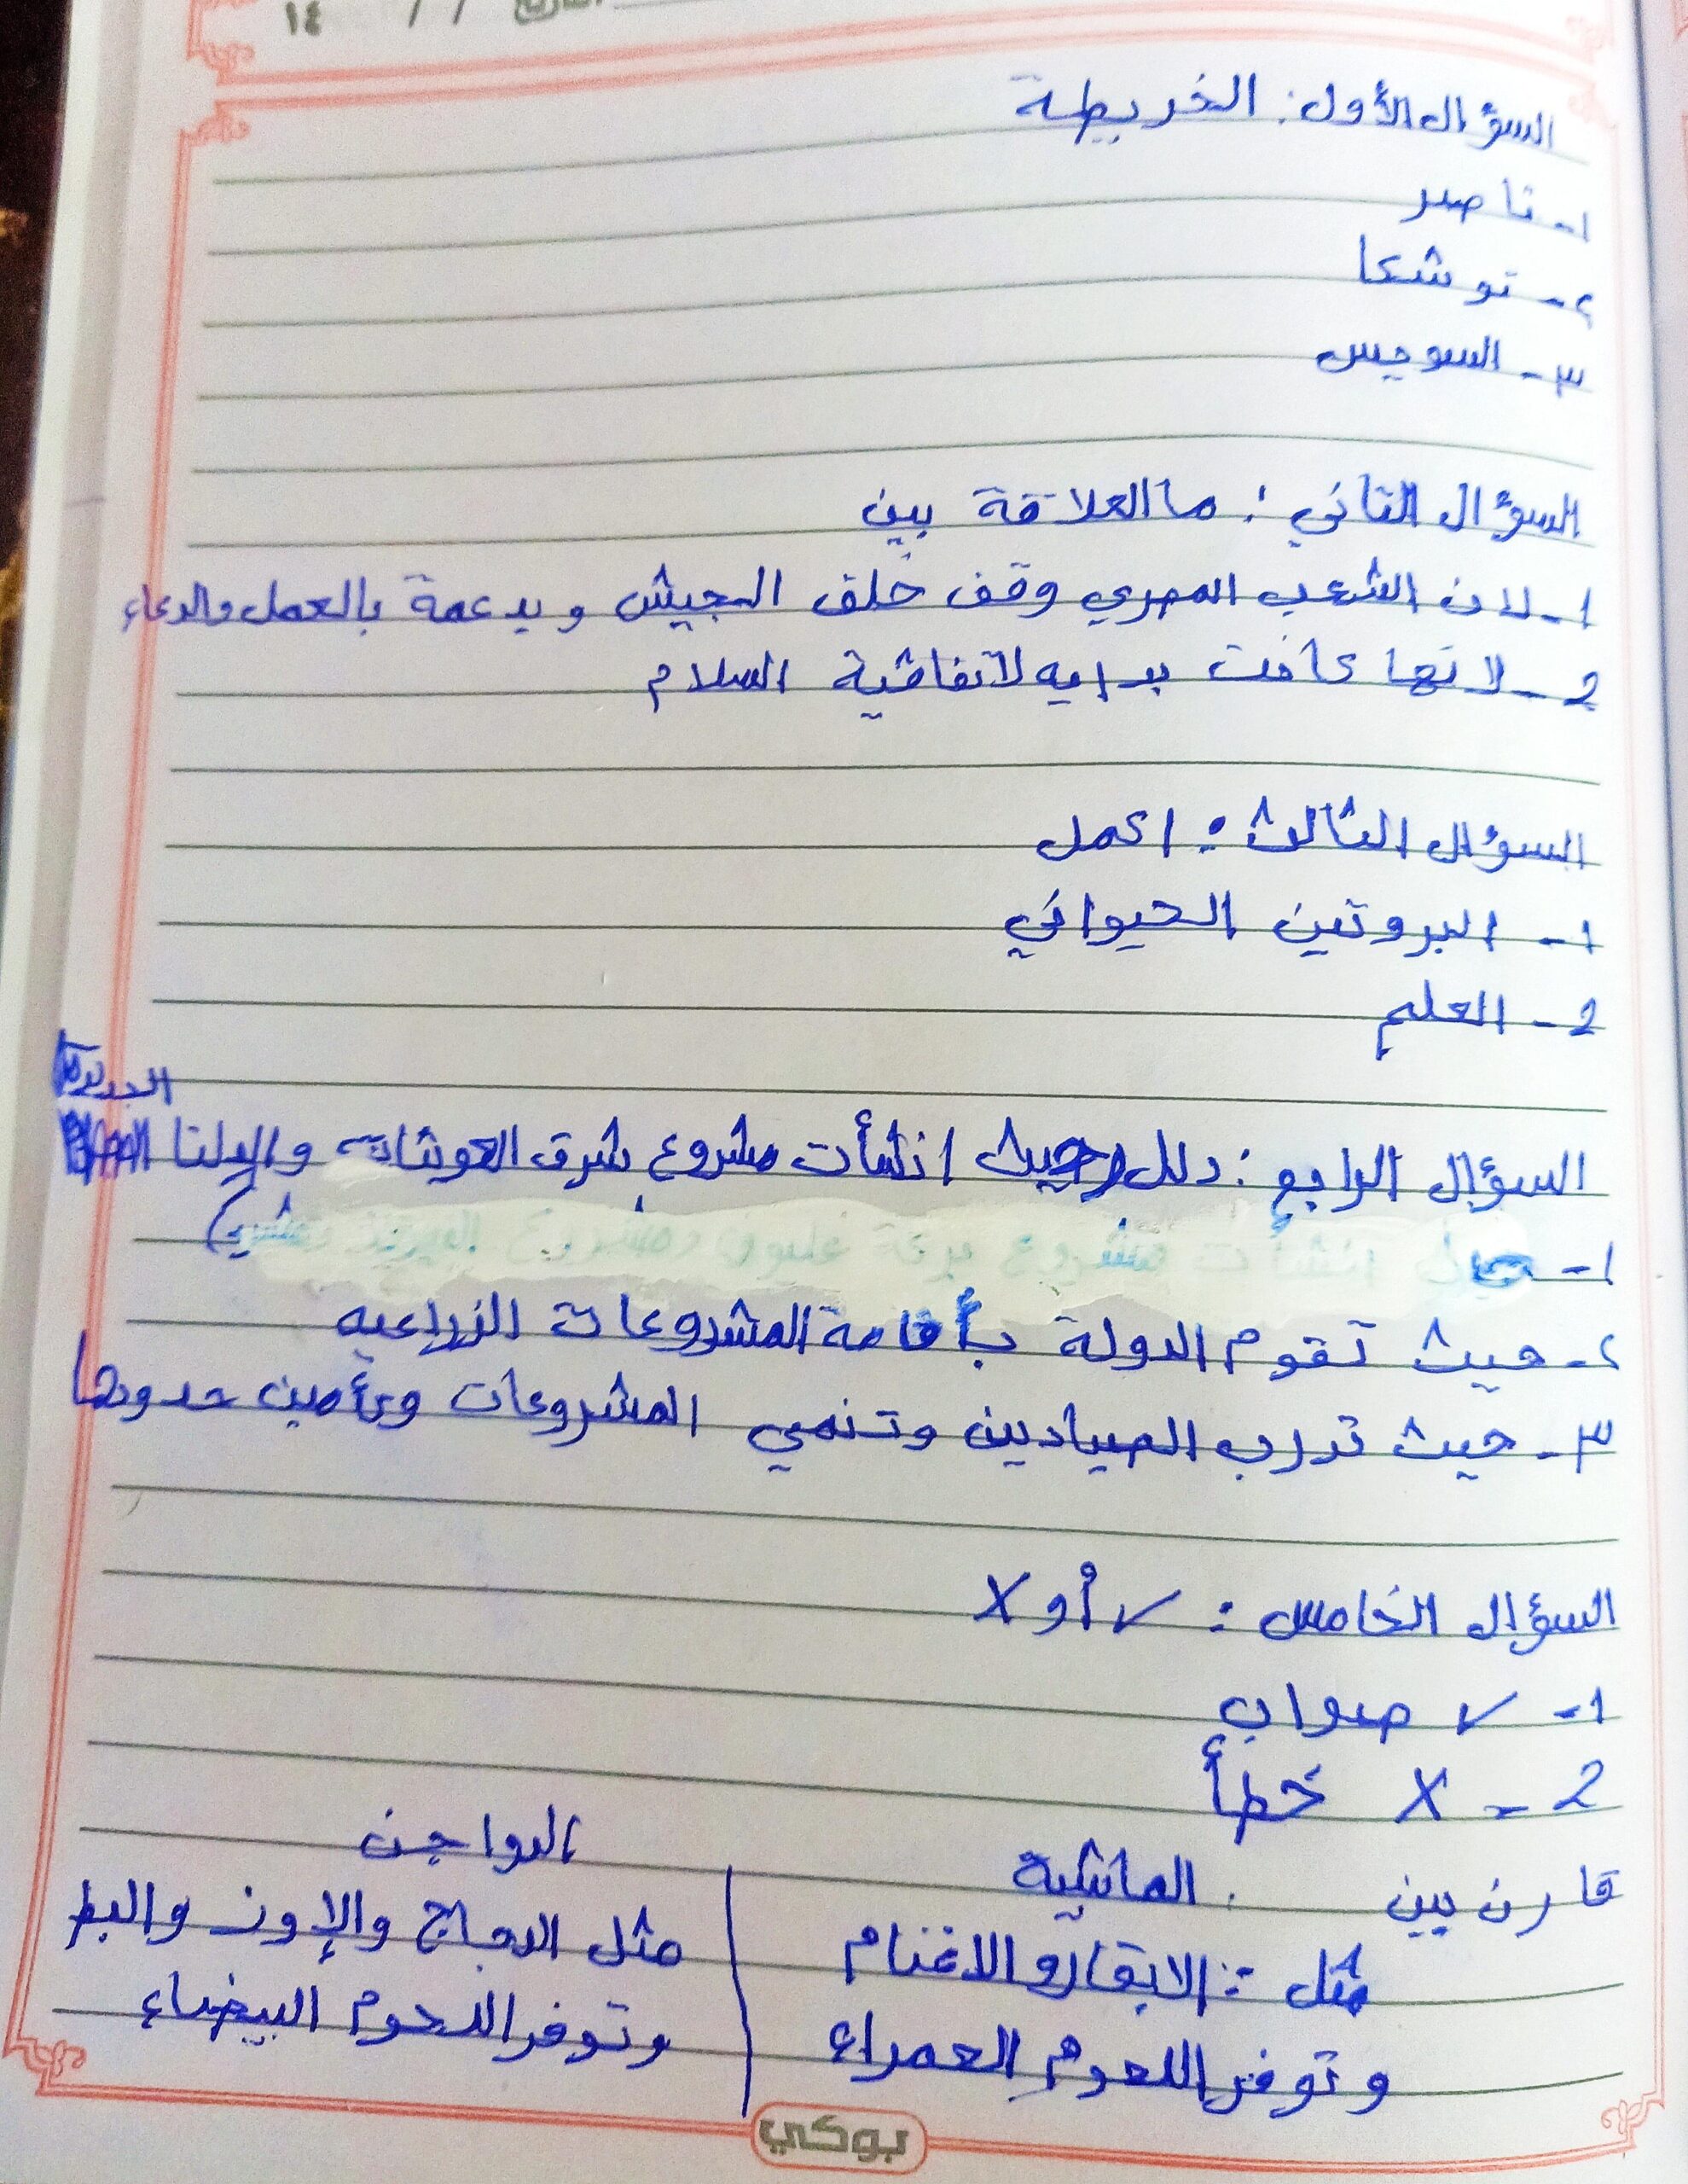 التاريخ / / ١٤
السؤال الأول: الخريطة
١- ناصر
٢- توشكا
٣- السويس
السؤال الثاني: ما العلاقة بين
1- لان الشعب المصري وقف خلف الجيش ويدعمة بالعمل والدعاء
2- لانها كانت بدايه لاتفاقية السلام
السؤال الثالث: اكمل
1- البروتين الحيواني
2- العلم
الجديدة
السؤال الرابع: دلل (حيث انشأت مشروع شرق العوينات والدلتا
1- انشأت مشروع بركة غليون ومشروع الفيروز
٢- حيث تقوم الدولة بأقامة المشروعات الزراعيه
٣- حيث تدرب الصيادين وتنمي المشروعات وتأمين حدودها
السؤال الخامس: ✓ أو X
1- ✓ صواب
2- X خطأ
قارن بين الماشية الدواجن
مثل: الابقار والاغنام مثل الدجاج والإوز والبط
وتوفر اللحوم الحمراء وتوفر اللحوم البيضاء
بوكي